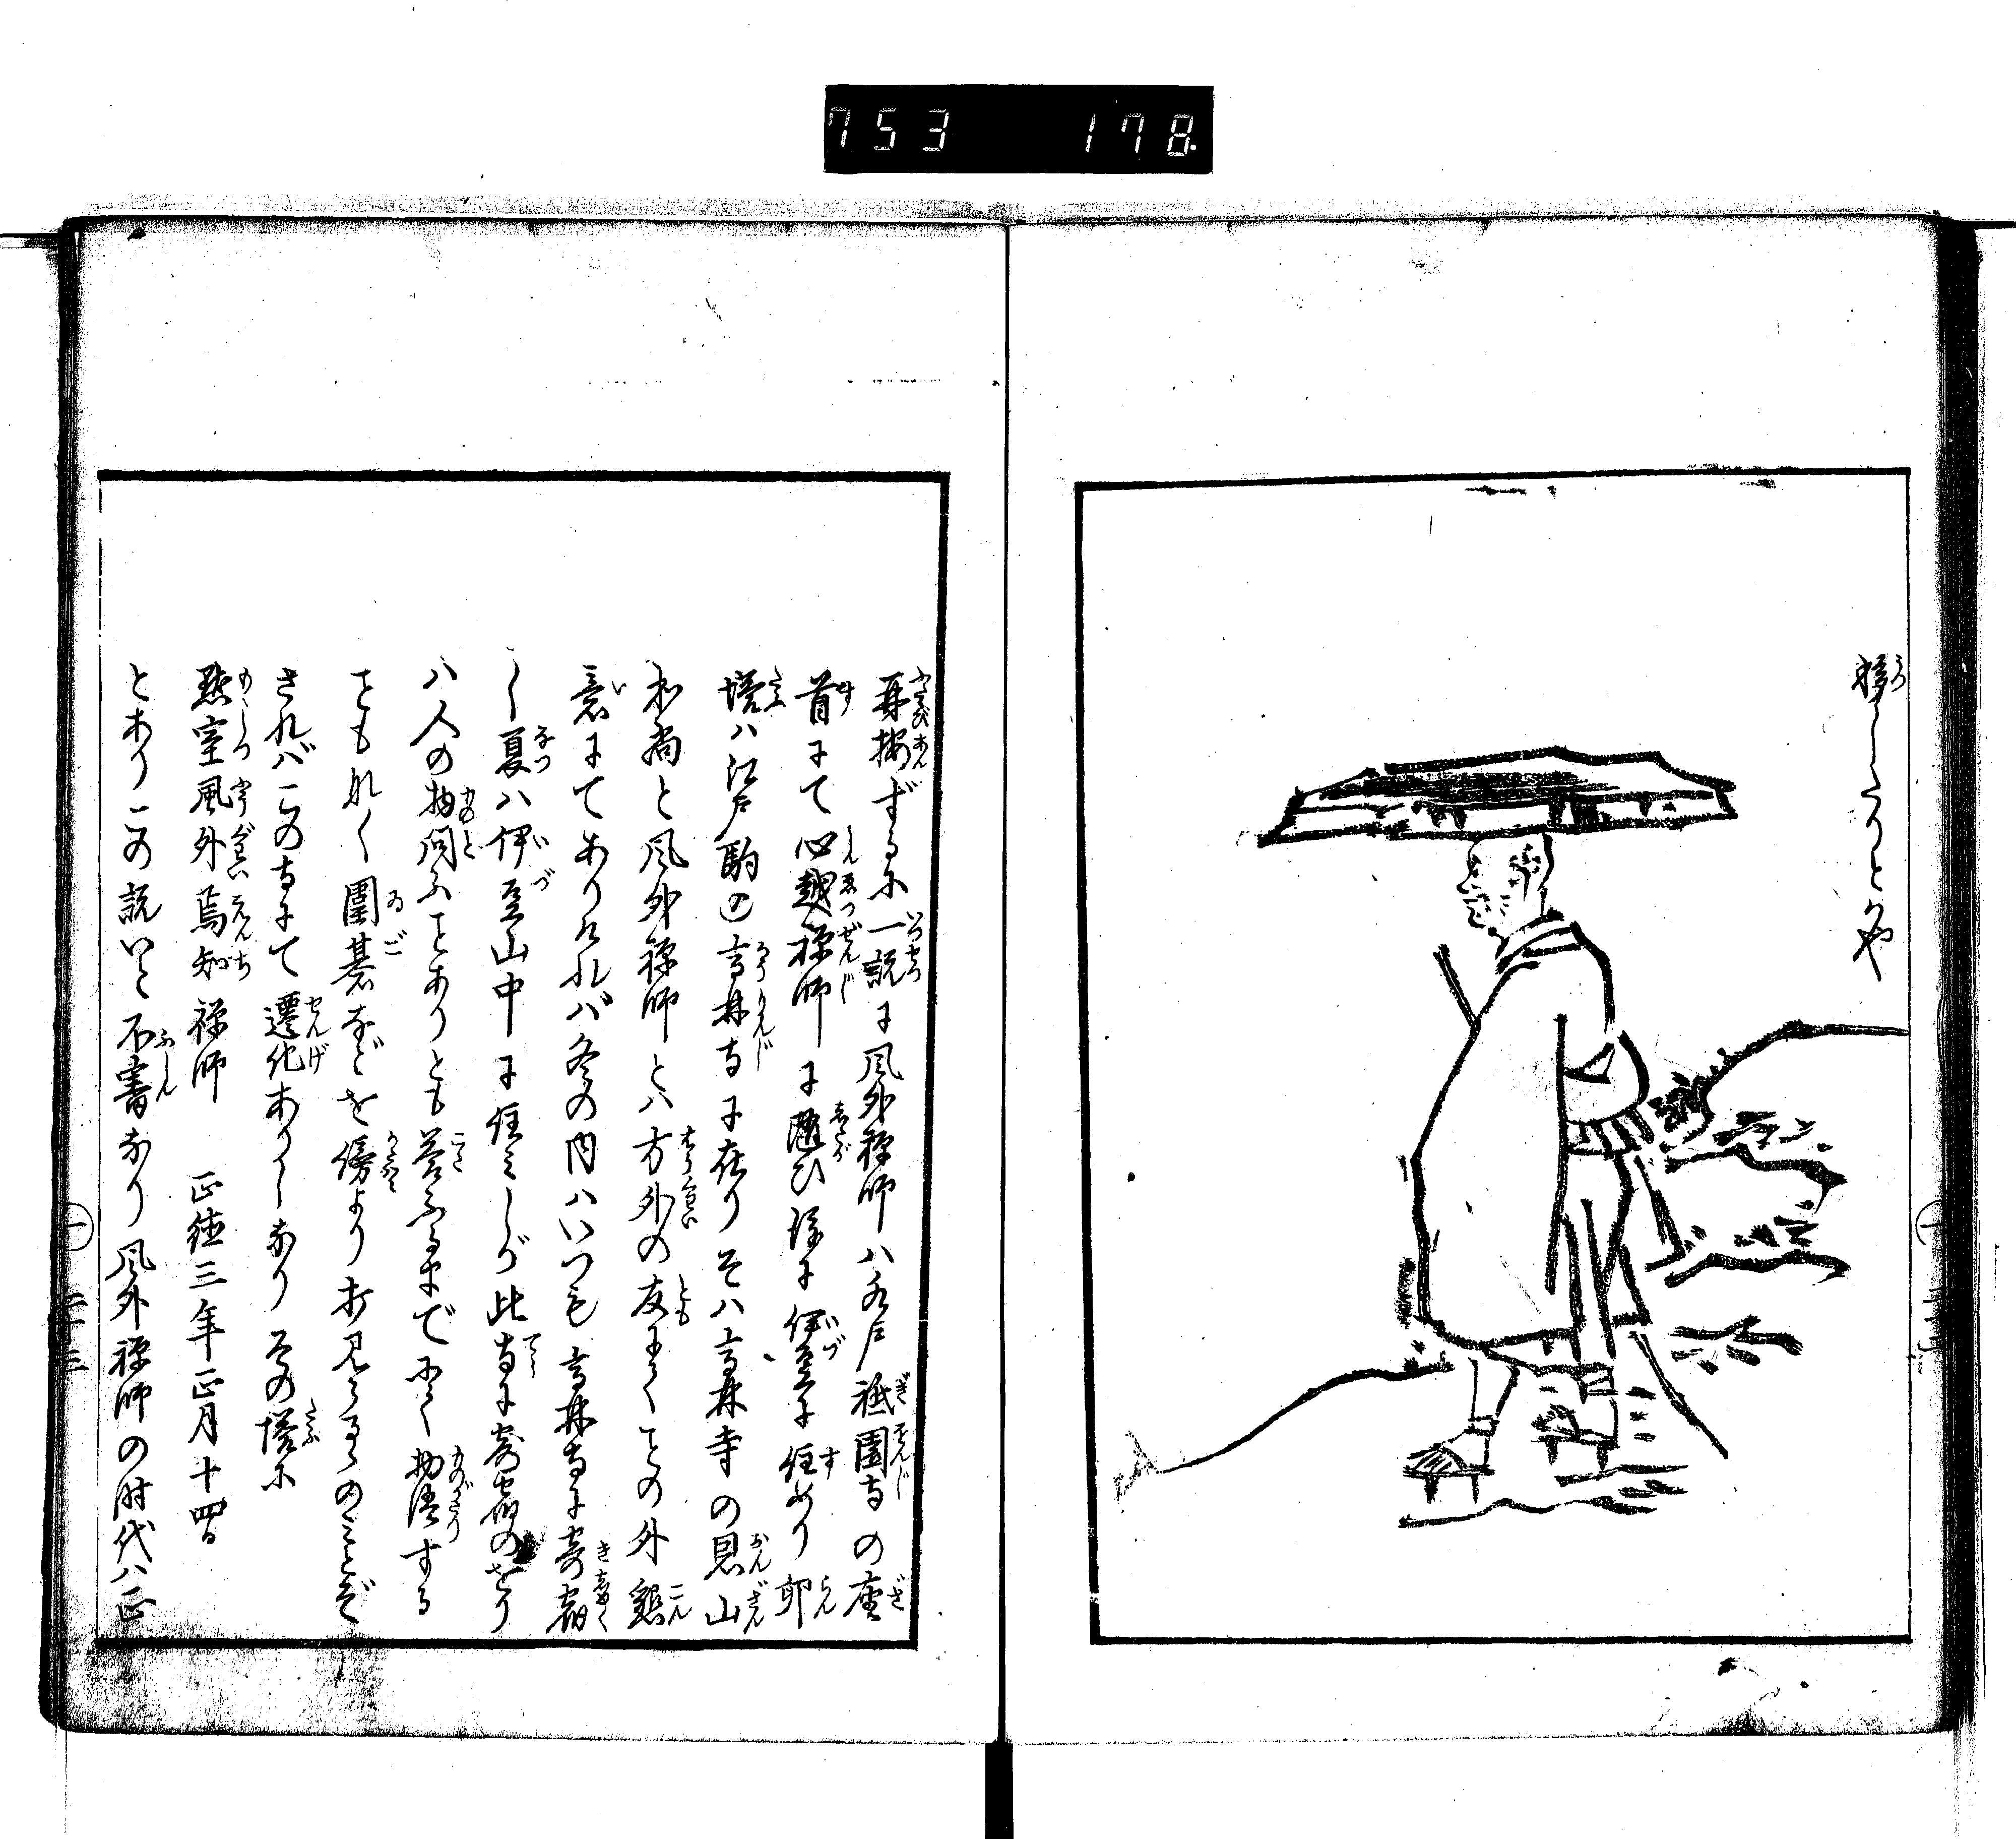 753 178.
移したりとかや
再按ずるに一説に風外禅師ハ水戸祗園寺の座
首にて心越禅師に随ひ後に伊豆に住めり卵
塔ハ江戸駒込高林寺に在りそハ高林寺の恩山
和尚と風外禅師とハ方外の友にてことの外懇
意にてありけれバ冬の内ハいつも高林寺に寄宿
し夏ハ伊豆山中に住ミしが此寺に寄宿のをり
ハ人の物問ふことありとも答ふるまでにて物語する
こともなく囲碁などを傍より打見らるゝのミとぞ
されバこの寺にて遷化ありしなりその塔に
黙室風外焉知禅師 正徳三年正月十四日
とありこの説いと不審なり風外禅師の時代ハ正